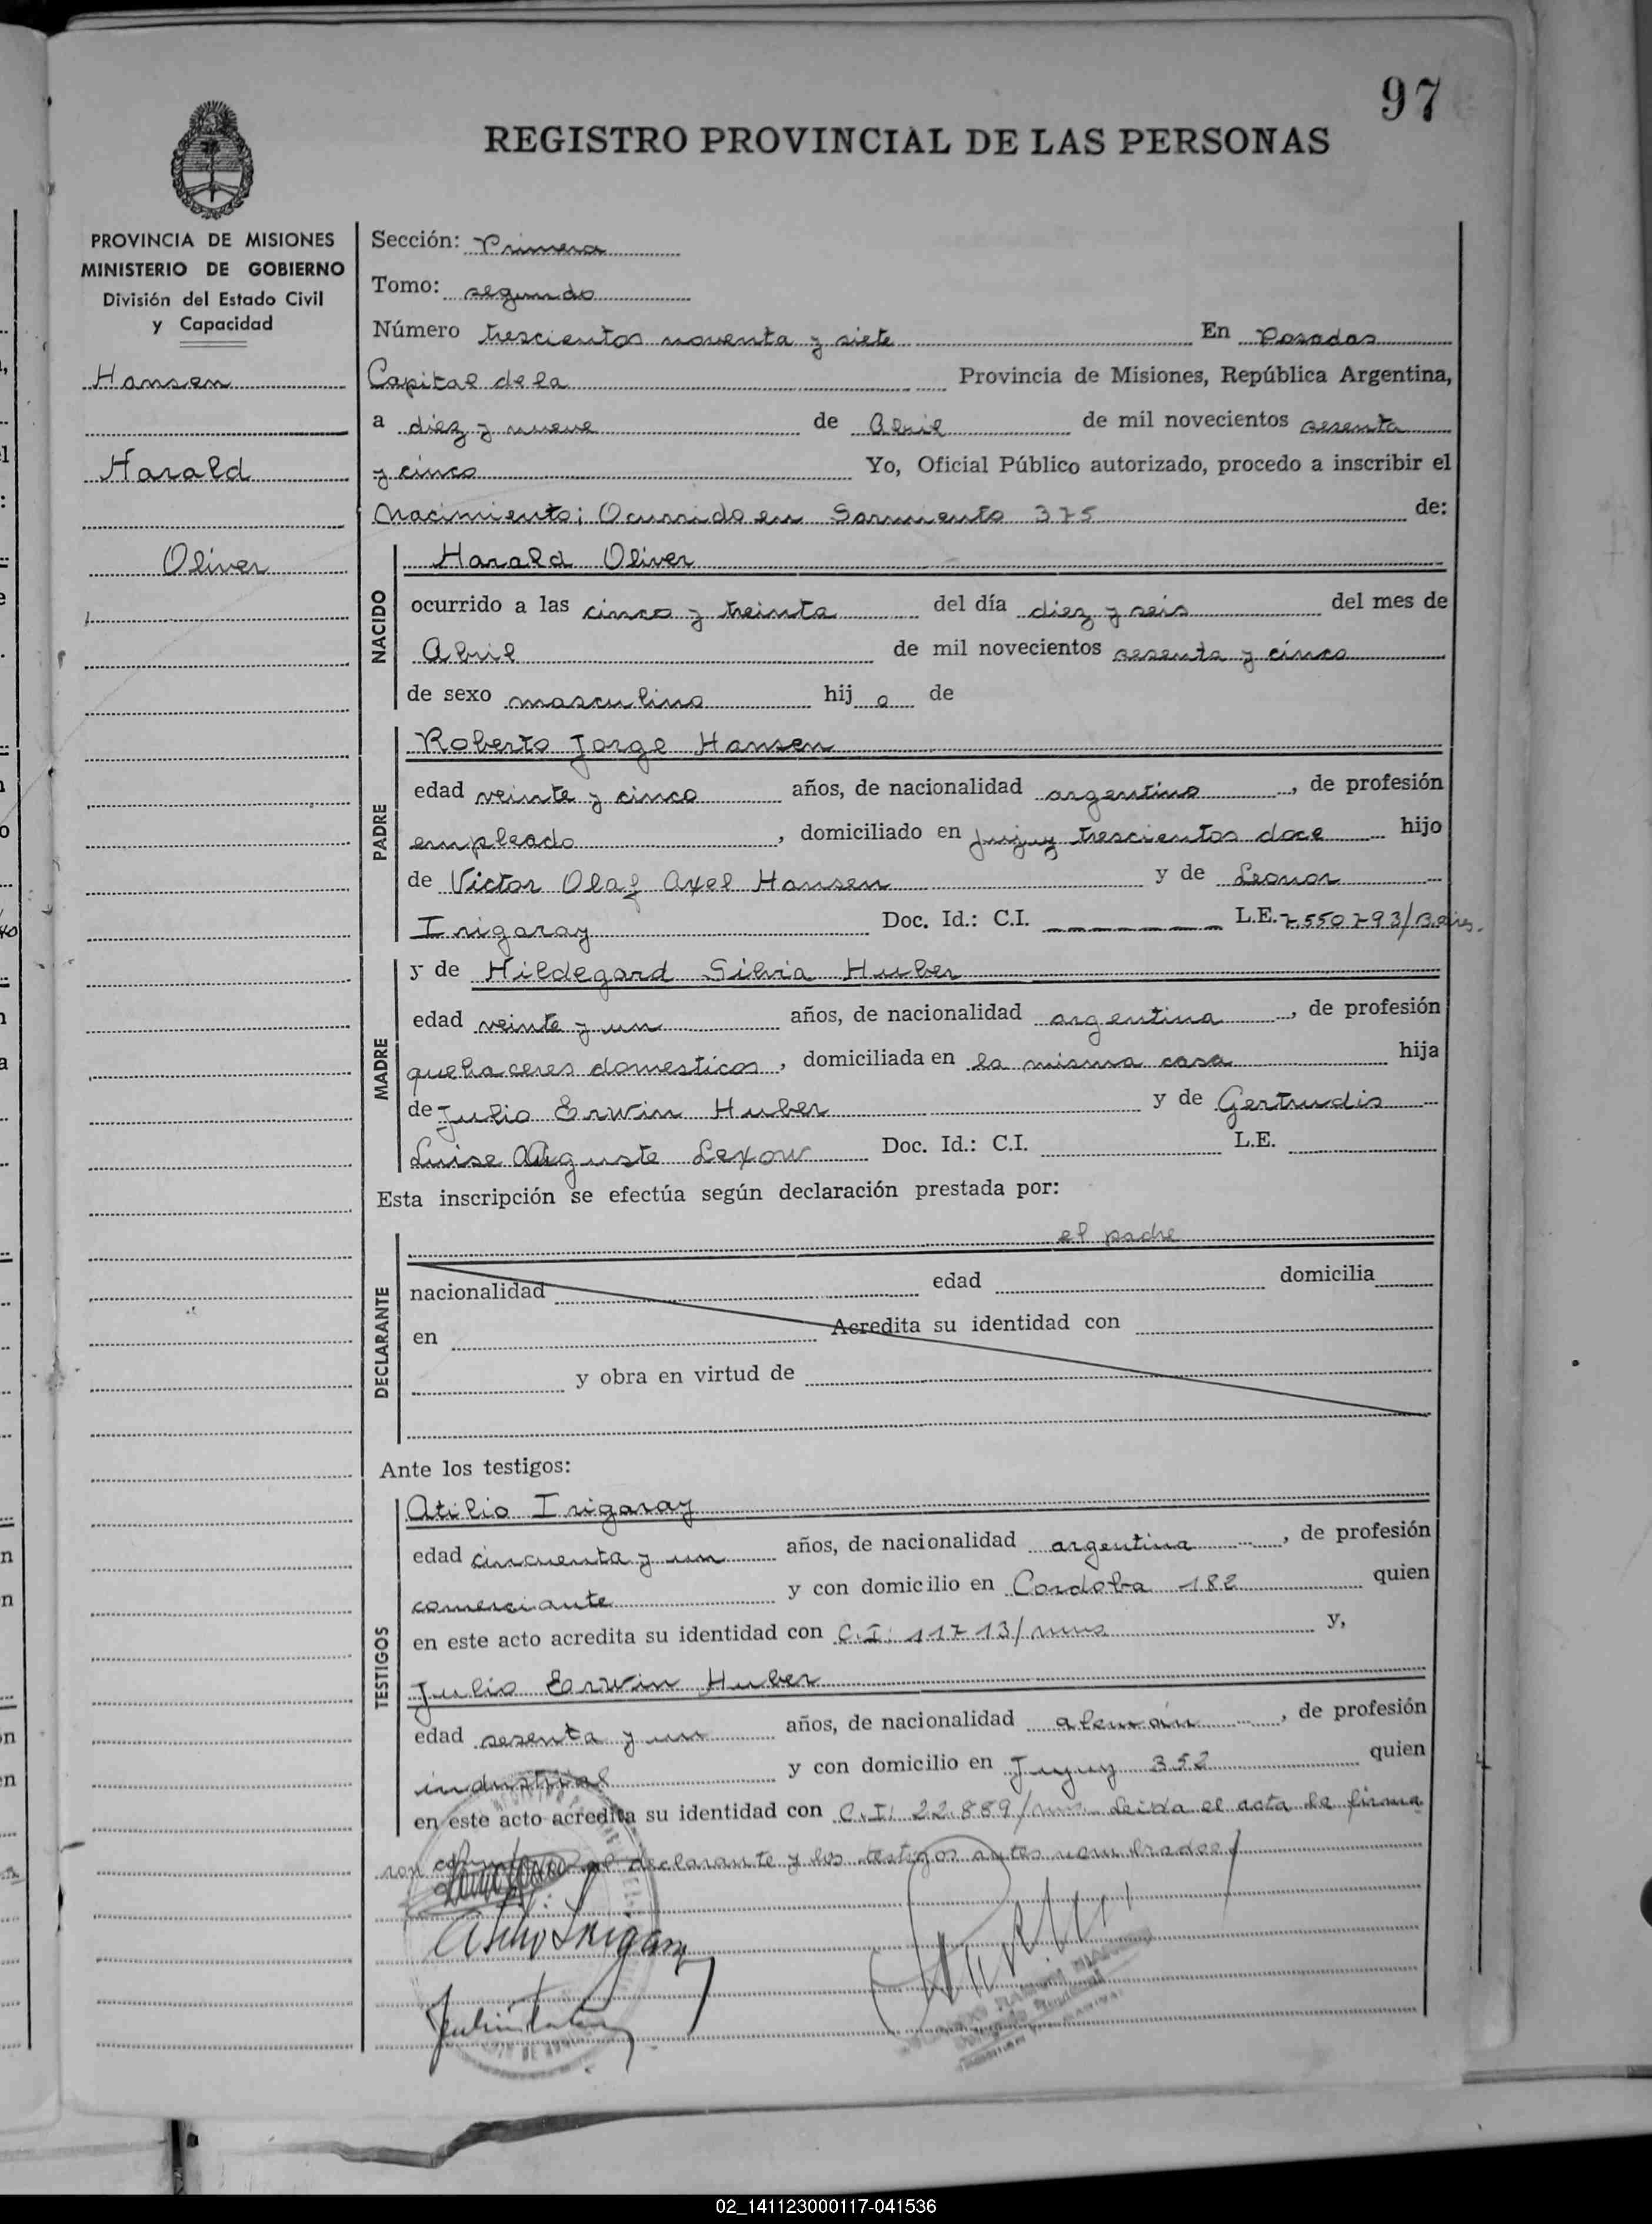 97
REGISTRO PROVINCIAL DE LAS PERSONAS
PROVINCIA DE MISIONES
MINISTERIO DE GOBIERNO
División del Estado Civil
y Capacidad
Hansen
Harald
Oliver
Sección: Primera
Tomo: segundo
Número trescientos noventa y siete En Posadas
Capital de la Provincia de Misiones, República Argentina,
a diez y nueve de Abril de mil novecientos sesenta
y cinco Yo, Oficial Público autorizado, procedo a inscribir el
Nacimiento; Ocurrido en Sarmiento 375 de:
NACIDO
Harald Oliver
ocurrido a las cinco y treinta del día diez y seis del mes de
Abril de mil novecientos sesenta y cinco
de sexo masculino hij o de
PADRE
Roberto Jorge Hansen
edad veinte y cinco años, de nacionalidad argentino, de profesión
empleado, domiciliado en Jujuy trescientos doce hijo
de Victor Olaf Axel Hansen y de Leonor
Irigaray Doc. Id.: C.I. L.E. 7.550.793/B.aires.
MADRE
y de Hildegard Silvia Huber
edad veinte y un años, de nacionalidad argentina, de profesión
quehaceres domesticos, domiciliada en la misma casa hija
de Julio Erwin Huber y de Gertrudis
Luise Auguste Lexow Doc. Id.: C.I. L.E.
Esta inscripción se efectúa según declaración prestada por:
DECLARANTE
el padre
nacionalidad edad domicilia
en Acredita su identidad con
y obra en virtud de
Ante los testigos:
TESTIGOS
Atilio Irigaray
edad cincuenta y un años, de nacionalidad argentina, de profesión
comerciante y con domicilio en Cordoba 182 quien
en este acto acredita su identidad con C.I: 11713/mns y,
Julio Erwin Huber
edad sesenta y un años, de nacionalidad alemán, de profesión
industrial y con domicilio en Jujuy 352 quien
en este acto acredita su identidad con C.I: 22.889/mns. Leida el acta la firma
ron el declarante y los testigos antes nombrados
02_141123000117-041536